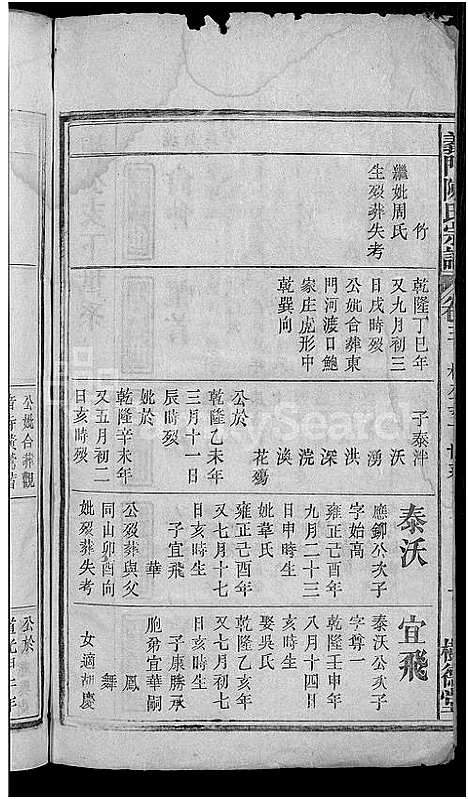 義門陳氏宗譜
卷三
樹德堂
竹
繼妣周氏
生歿葬失考
乾隆丁巳年
又九月初三
日戌時歿
公妣合葬東
門河渡口鮑
家庄虎形中
乾巽向
子泰泮
沃
湧
洪
深
浣
渙
花殤
公於
乾隆乙未年
三月十一日
辰時歿
妣於
乾隆辛未年
又五月初二
日亥時歿
泰沃
應鉚公次子
字始高
雍正己酉年
九月二十三
日申時生
妣韋氏
雍正己酉年
又七月十七
日亥時生
子宜飛
華
公歿葬與父
同山卯酉向
妣歿葬失考
宜飛
泰沃公次子
字尊一
乾隆壬申年
八月十四日
娶吳氏
乾隆乙亥年
又七月初七
日亥時生
子康勝承
胞弟宜華嗣
鳳
舞
女適胡慶
公妣合葬觀
公於